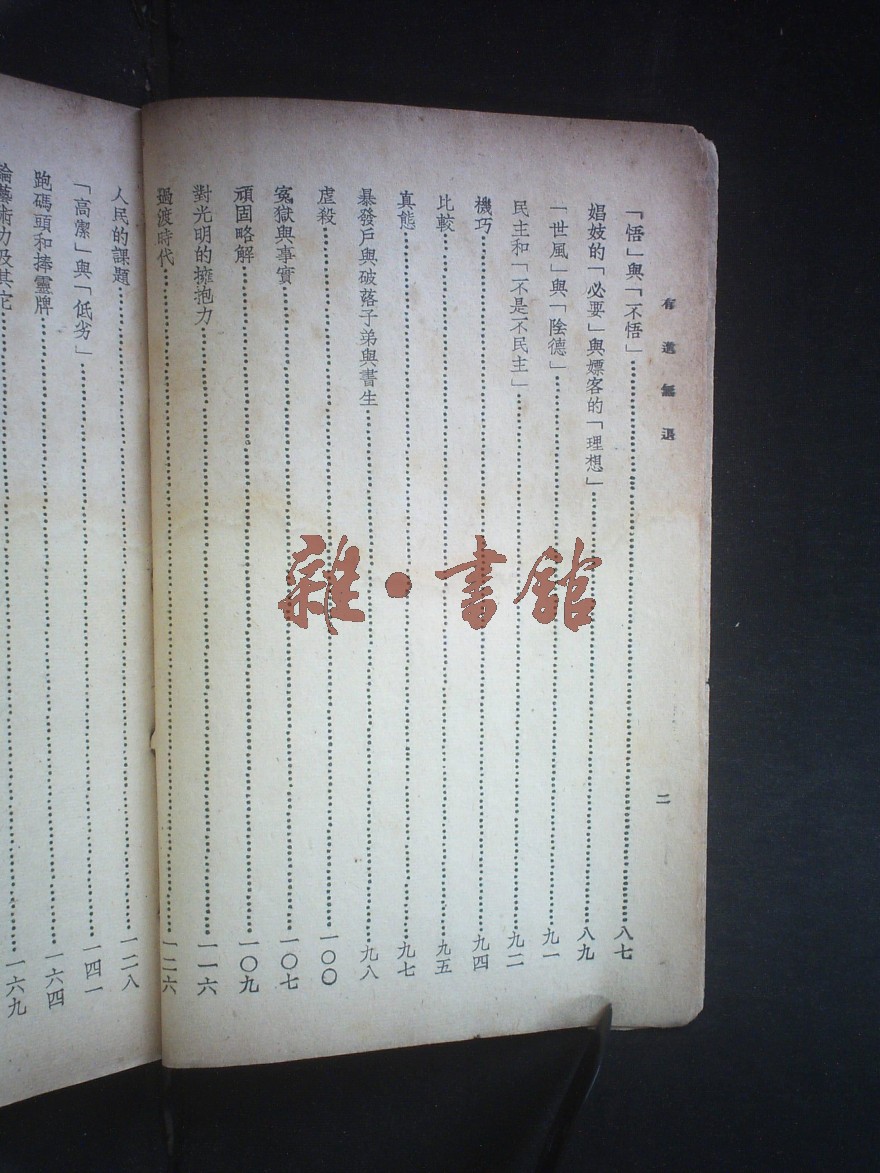 有進無退
二
「悟」與「不悟」八七
娼妓的「必要」與嫖客的「理想」八九
「世風」與「陰德」九一
民主和「不是不民主」九二
機巧九四
比較九五
真態九七
暴發戶與破落子弟與書生九八
虐殺一〇〇
冤獄與事實一〇七
頑固略解一〇九
對光明的擁抱力一一六
過渡時代一二六
人民的課題一二八
「高潔」與「低劣」一四一
跑碼頭和捧靈牌一六四
論藝術力及其它一六九
雜·書館